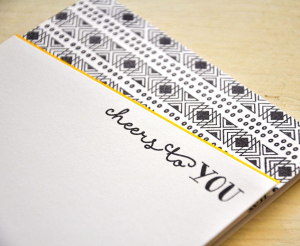 cheers to YOU